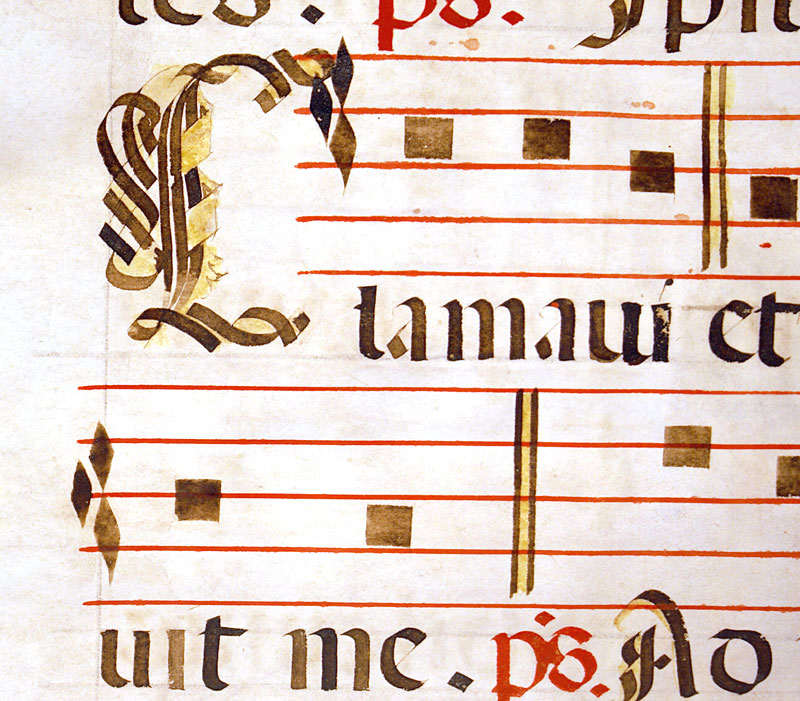 ps.
Clamaui et
uit me. ps. Ad